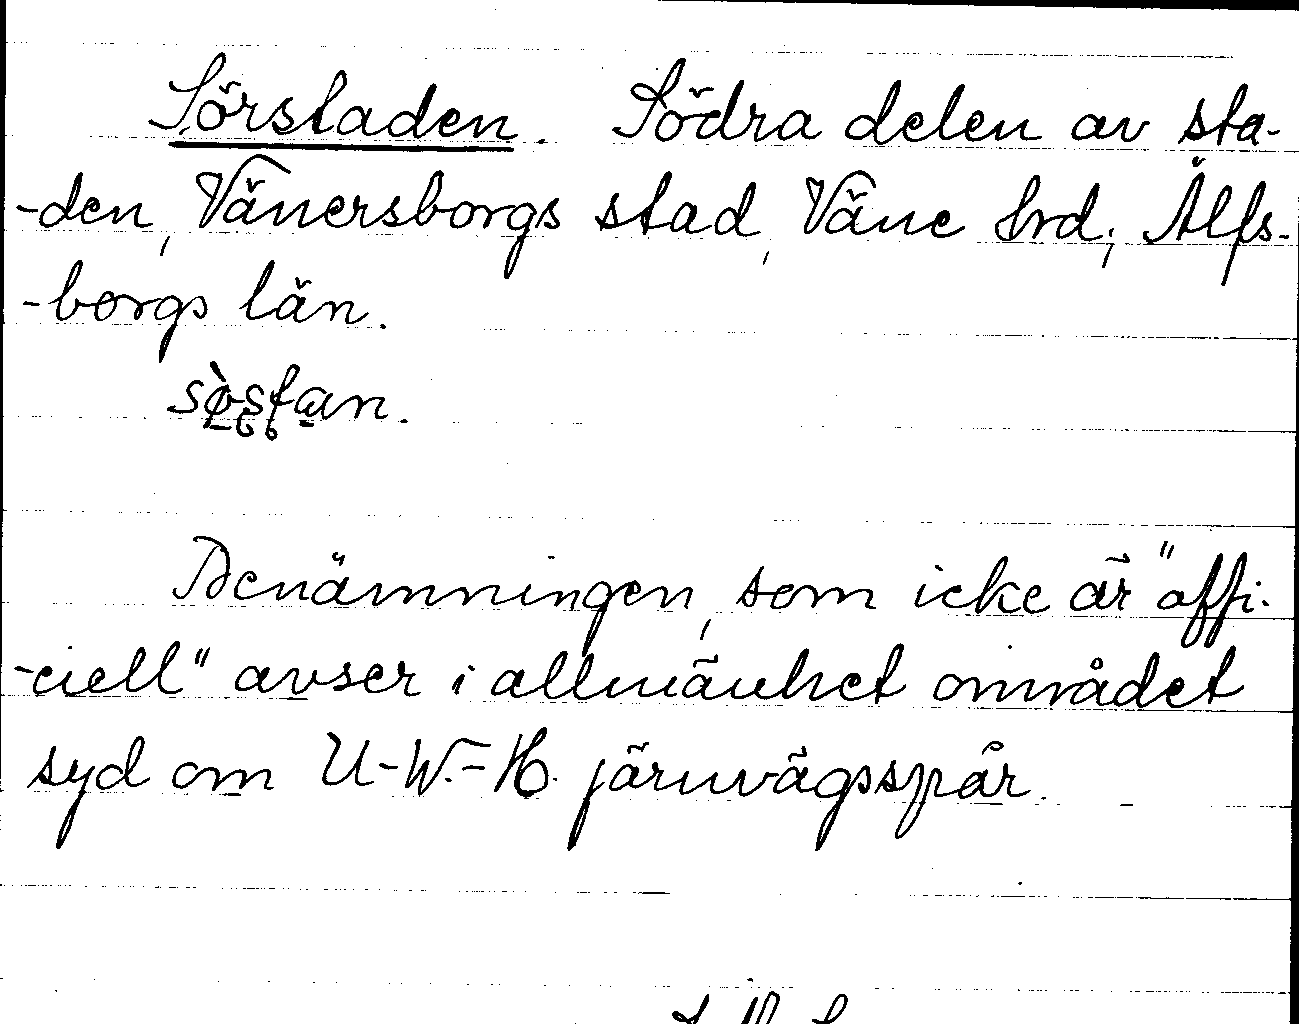 Sörstaden. Södra delen av sta-
-den, Vänersborgs stad, Väne hrd, Älfs-
-borgs län.

Benämningen, som icke är "offi-
-ciell" avser i allmänhet området
syd om U-W.-H. järnvägsspår.